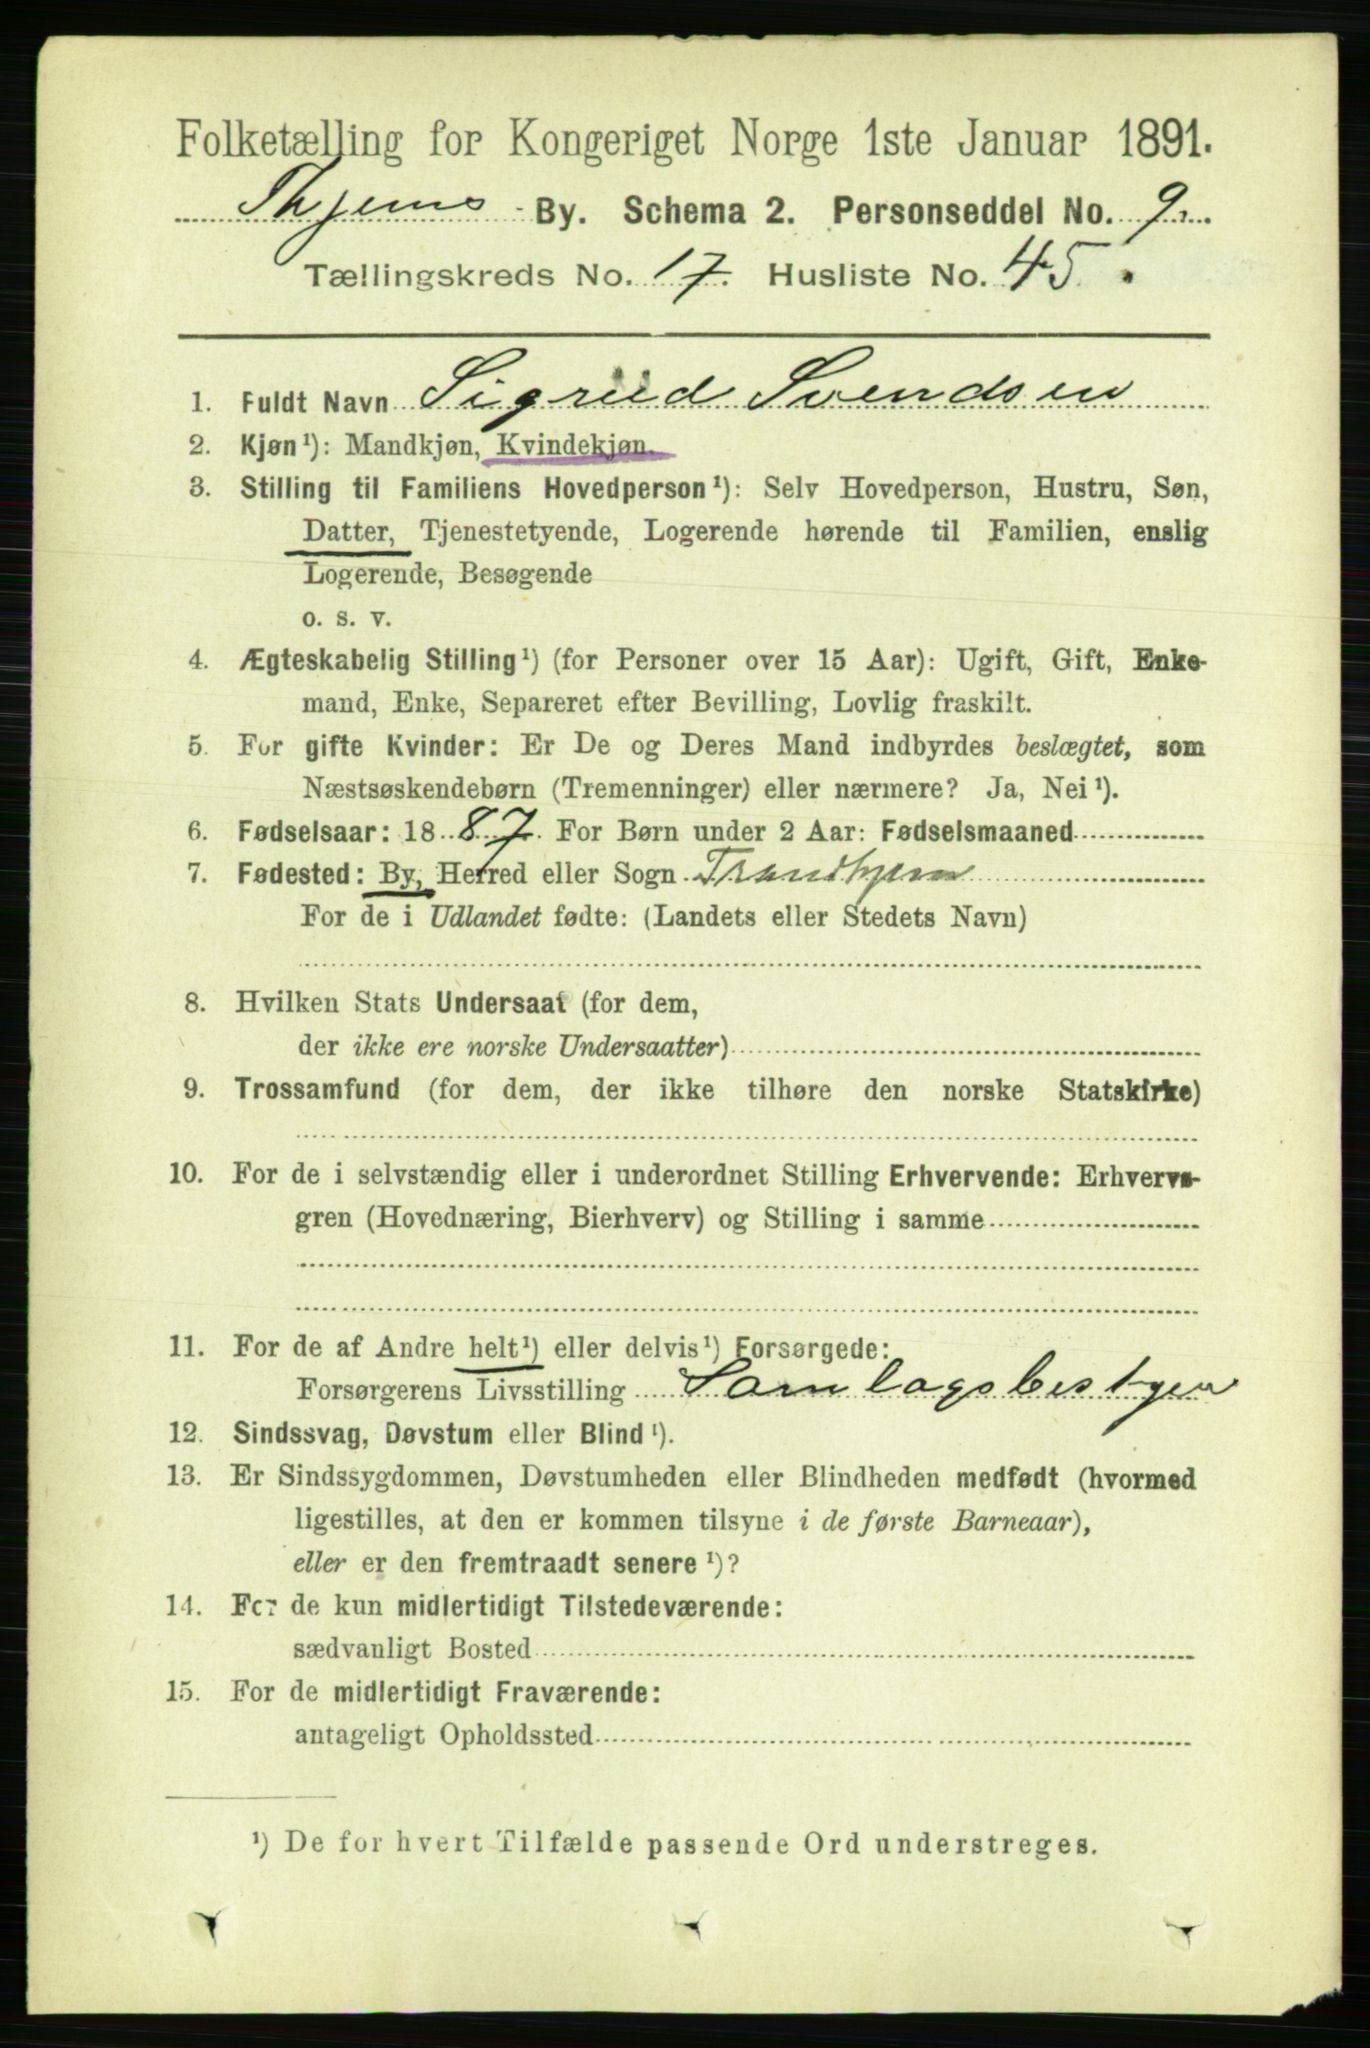 Folketælling for Kongeriget Norge 1ste Januar 1891.
Thjems By. Schema 2. Personseddel No. 9.
Tællingskreds No. 17. Husliste No. 45.
1. Fuldt Navn Sigrid Svendsen
2. Kjøn¹): Mandkjøn, Kvindekjøn.
3. Stilling til Familiens Hovedperson¹): Selv Hovedperson, Hustru, Søn,
Datter, Tjenestetyende, Logerende hørende til Familien, enslig
Logerende, Besøgende
o. s. v.
4. Ægteskabelig Stilling¹) (for Personer over 15 Aar): Ugift, Gift, Enke-
mand, Enke, Separeret efter Bevilling, Lovlig fraskilt.
5. For gifte Kvinder: Er De og Deres Mand indbyrdes beslægtet, som
Næstsøskendebørn (Tremenninger) eller nærmere? Ja, Nei¹).
6. Fødselsaar: 1887. For Børn under 2 Aar: Fødselsmaaned
7. Fødested: By, Herred eller Sogn Trondhjem
For de i Udlandet fødte: (Landets eller Stedets Navn)
8. Hvilken Stats Undersaat (for dem,
der ikke ere norske Undersaatter)
9. Trossamfund (for dem, der ikke tilhøre den norske Statskirke)
10. For de i selvstændig eller i underordnet Stilling Erhvervende: Erhvervs-
gren (Hovednæring, Bierhverv) og Stilling i samme
11. For de af Andre helt¹) eller delvis¹) Forsørgede:
Forsørgerens Livsstilling Samlagsbestyer
12. Sindssvag, Døvstum eller Blind¹).
13. Er Sindssygdommen, Døvstumheden eller Blindheden medfødt (hvormed
ligestilles, at den er kommen tilsyne i de første Barneaar),
eller er den fremtraadt senere¹)?
14. For de kun midlertidigt Tilstedeværende:
sædvanligt Bosted
15. For de midlertidigt Fraværende:
antageligt Opholdssted
¹) De for hvert Tilfælde passende Ord understreges.